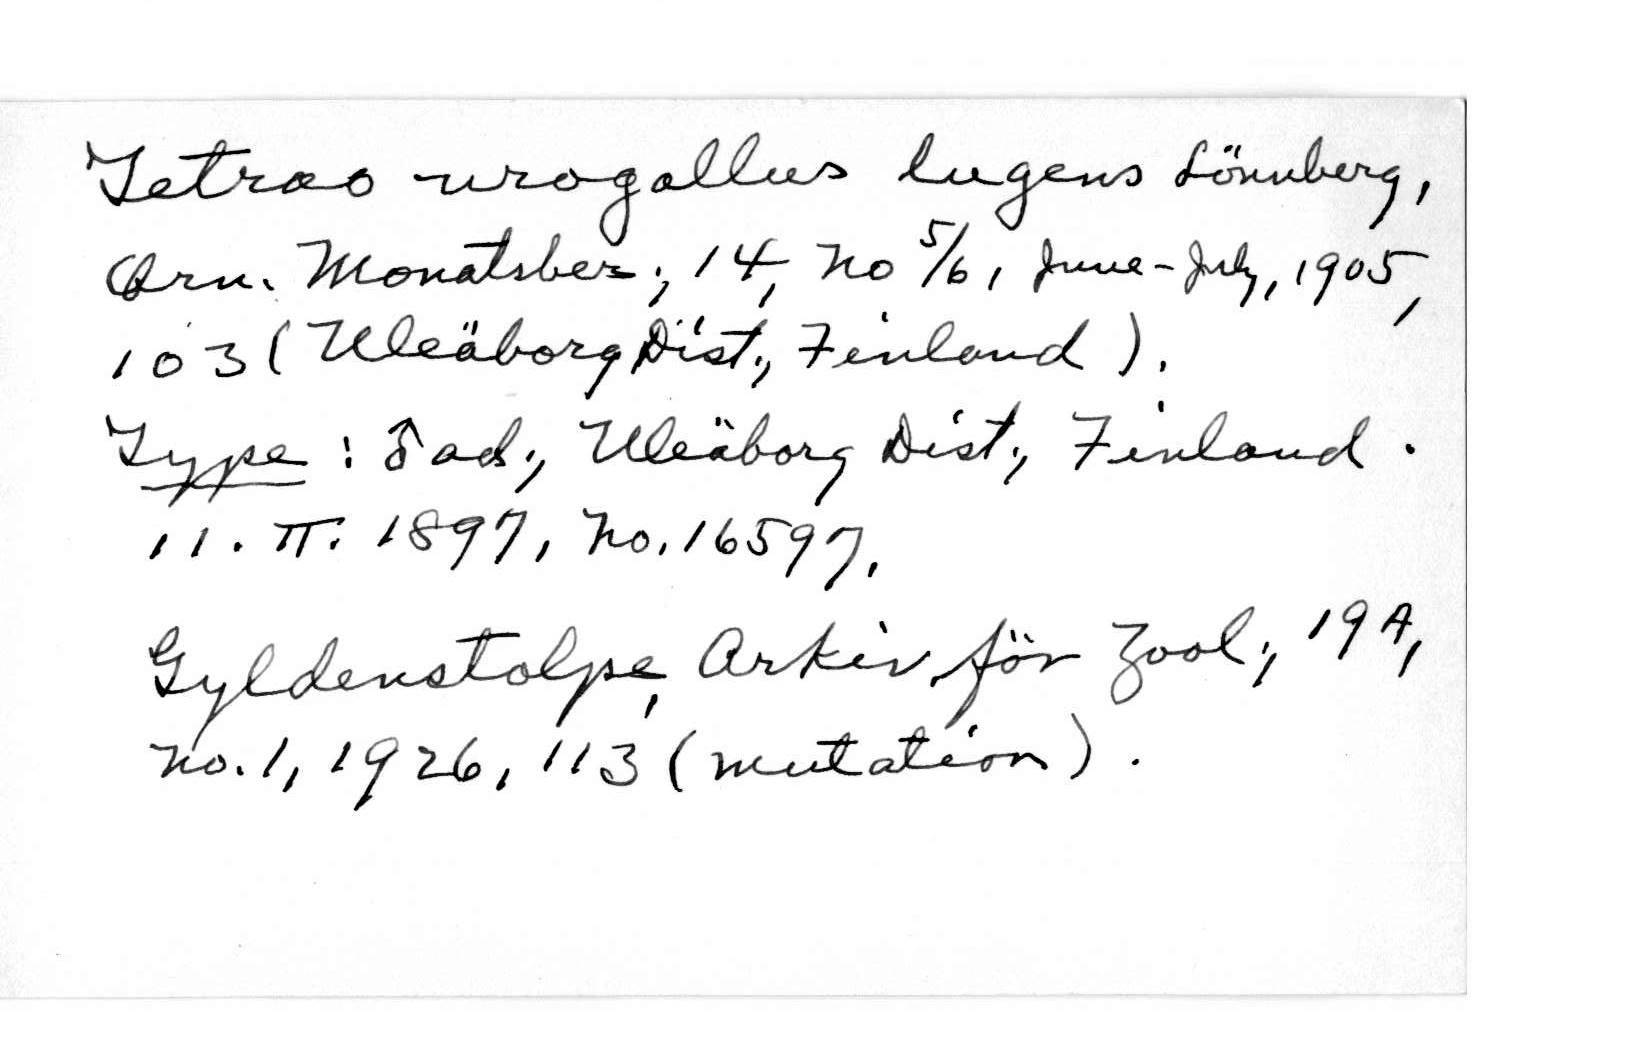 Tetrao urogallus lugens Lönnberg,
Orn. Monatsber., 14, No 5/6, June-July, 1905,
103 (Uleäborg Dist., Finland).
Type: ♂ ad., Uleäborg Dist., Finland.
11. II. 1897, No. 16597.
Gyldenstolpe, Arkiv för Zool., 19A,
No. 1, 1926, 113 (mutation).